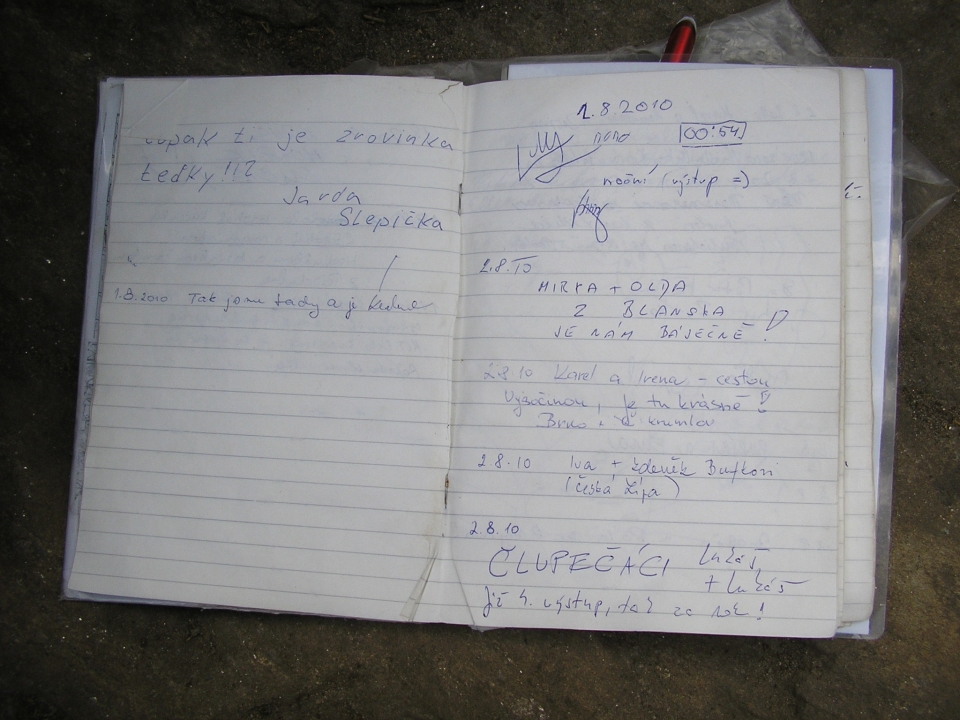 ti je zrovinka
teďky!!?
Jarda
Slepička
1.8.2010 Tak jsme tady a je
2.8.2010
00:54
noční výstup =)
2.8.10
MIRKA + OLDA
Z BLANSKA
JE NÁM BÁJEČNĚ!
2.8.10 Karel a Irena - cestou
Vysočinou, je tu krásně!
Brno, Krumlov
2.8.10 Iva + Zdeněk
(Česká Lípa)
2.8.10
ČLUPEČÁCI Lukáš,
+ Lukáš
Již 4. výstup, tak za rok!